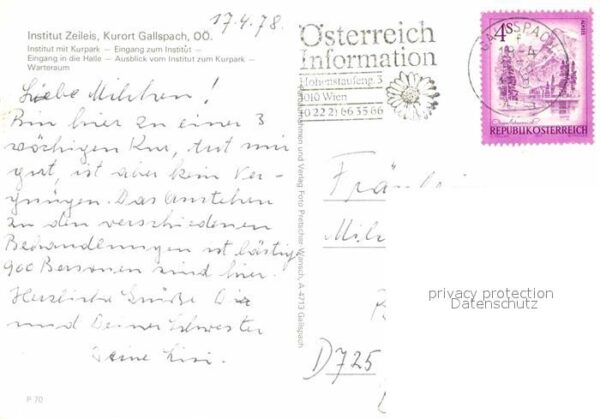 17.4.78.
Institut Zeileis, Kurort Gallspach, OÖ.
Institut mit Kurpark – Eingang zum Institut –
Eingang in die Halle – Ausblick vom Institut zum Kurpark –
Warteraum
Liebe Milchen!
Bin hier zu einer 3
wöchigen Kur, tut mir
gut, ist aber kein Ver-
gnügen. Das Anstehen
zu den verschiedenen
Behandlungen ist lästig,
900 Personen sind hier.
Herzliche Grüße Dir
und Deiner Schwester
Deine Lisi.
P 70
Verlag Foto Pretscher Wansch, A-4713 Gallspach
Österreich
Information
Hohenstaufeng. 3
1010 Wien
(0 22 2) 66 35 66
GALLSPACH
4S
REPUBLIK ÖSTERREICH
Fräulein
Mil
D 725
privacy protection
Datenschutz